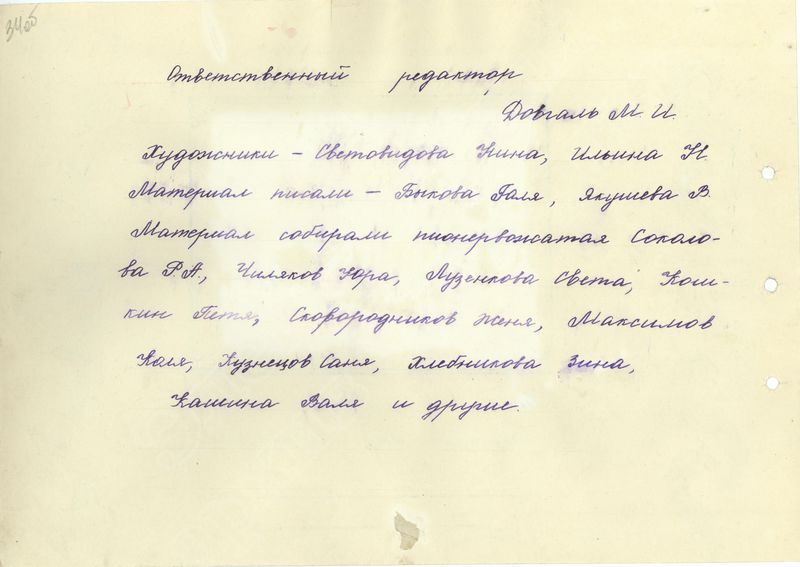 34об
Ответственный редактор
Довгаль М. И.
Художники – Световидова Нина, Ильина Н.
Материал писали – Быкова Галя, Якушева В.
Материал собирали пионервожатая Соколо-
ва Р.А., Чиляков Юра, Лузенкова Света, Кош-
кин Петя, Сковородников Женя, Максимов
Коля, Кузнецов Саня, Хлебникова Зина,
Кашина Валя и другие.